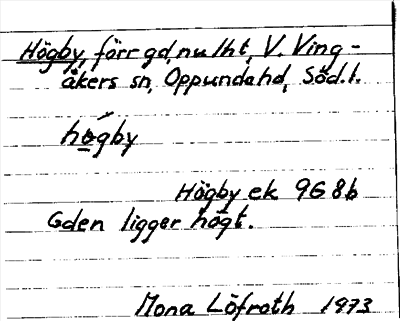 Högby, förr gd, nu lht, V. Ving-
åkers sn, Oppunda hd, Söd. l.
hö́gby
Högby ek 9G 8b
Gden ligger högt.
Mona Löfroth 1973